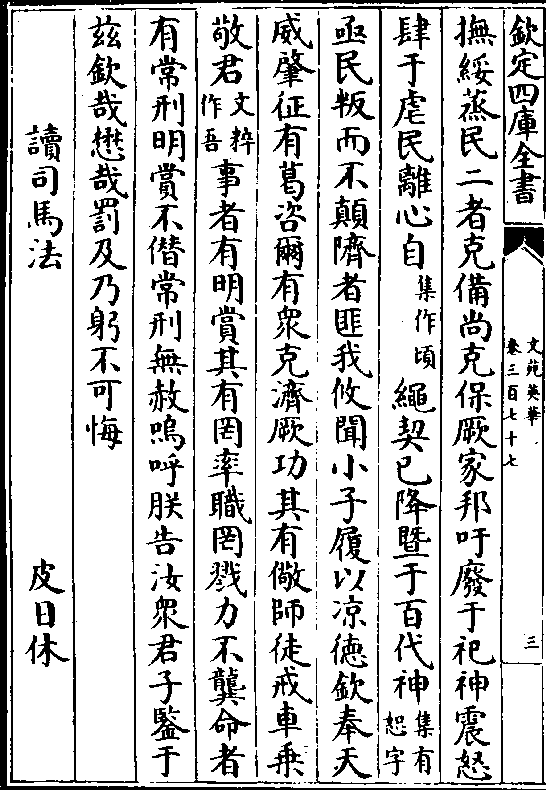 欽定四庫全書
文苑英華
卷三百七十七
三
撫綏蒸民二者克備尚克保厥家邦吁廢于祀神震怒
肆于虐民離心自集作頃繩契已降暨于百代神集有恕字
亟民叛而不顛隮者匪我攸聞小子履以涼德欽奉天
威肇征有葛咨爾有衆克濟厥功其有儆師徒戒車乗
敬君文粹作吾事者有明賞其有罔率職罔戮力不龔命者
有常刑明賞不僣常刑無赦嗚呼朕告汝衆君子鍳于
兹欽哉懋哉罰及乃躬不可悔
讀司馬法　皮日休